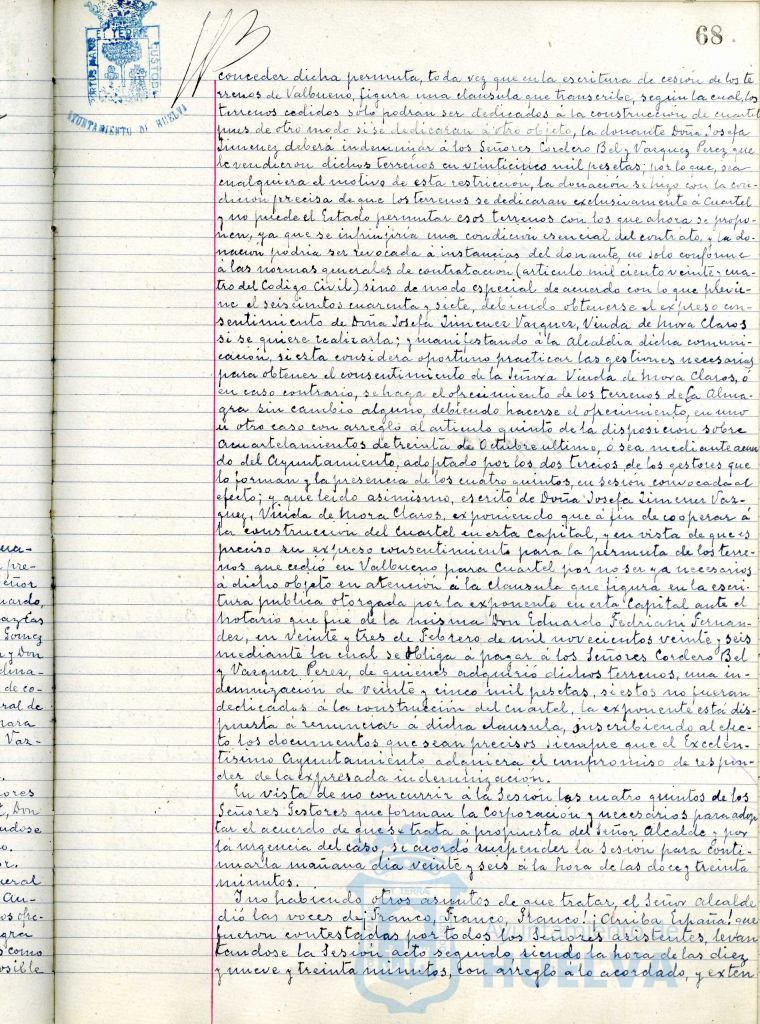 68.
AYUNTAMIENTO DE HUELVA
conceder dicha permuta, toda vez que en la escritura de cesión de los te
rrenos de Valbueno, figura una clausula que transcribe, según la cual, los
terrenos cedidos solo podran ser dedicados á la construccion de cuartel
pues de otro modo si se dedicaran á otro objeto, la donante Doña Josefa
Jimenez deberá indemnizar á los Señores Cordero Bel y Vazquez Perez que
le vendieron dichos terrenos en veinticinco mil pesetas; por lo que, sea
cualquiera el motivo de esta restriccion, la donación se hizo con la con-
dición precisa de que los terrenos se dedicaran exclusivamente á Cuartel
y no puede el Estado permutar esos terrenos con los que ahora se propo-
nen, ya que se infrinjiria una condicion esencial del contrato, y la do-
nacion podria ser revocada á instancias del donante, no solo conforme
á las normas generales de contratación (articulo mil ciento veinte y cua-
tro del Codigo Civil) sino de modo especial de acuerdo con lo que previe-
ne el seiscientos cuarenta y siete, debiendo obtenerse el expreso con-
sentimiento de Doña Josefa Jimenez Vazquez, Viuda de Mora Claros
si se quiere realizarla; y manifestando á la Alcaldia dicha comuni-
cación, si esta considera oportuno practicar las gestiones necesarias
para obtener el consentimiento de la Señora Viuda de Mora Claros, ó
en caso contrario, se haga el ofrecimiento de los terrenos de la Alma-
gra sin cambio alguno, debiendo hacerse el ofrecimiento, en uno
ú otro caso con arreglo al articulo quinto de la disposicion sobre
Acuartelamientos de treinta de Octubre ultimo, ó sea mediante acuer
do del Ayuntamiento, adoptado por los dos tercios de los gestores que
lo forman y la presencia de los cuatro quintos, en sesión convocada al
efecto; y que leido asimismo, escrito de Doña Josefa Jimenez Vaz-
quez, Viuda de Mora Claros, exponiendo que á fin de cooperar á
la construccion del Cuartel en esta Capital, y en vista de que es
preciso su expreso consentimiento para la permuta de los terre-
nos que cedió en Valbueno para Cuartel por no ser ya necesarios
á dicho objeto en atención á la Clausula que figura en la escri-
tura publica otorgada por la exponente en esta Capital ante el
Notario que fué de la misma Don Eduardo Fedriani Fernan-
dez, en veinte y tres de Febrero de mil novecientos veinte y seis
mediante la cual se obliga á pagar á los Señores Cordero Bel
y Vazquez Perez, de quienes adquirió dichos terrenos, una in-
demnización de veinte y cinco mil pesetas, si estos no fueran
dedicados á la construcción del cuartel, la exponente está dis-
puesta á renunciar á dicha clausula, suscribiendo al efec-
to los documentos que sean precisos siempre que el Excelen-
tisimo Ayuntamiento adquiera el compromiso de respon-
der de la expresada indemnización.
En vista de no concurrir á la Sesión los cuatro quintos de los
Señores Gestores que forman la Corporacion y necesarios para adop-
tar el acuerdo de que se trata á propuesta del Señor Alcalde y por
la urgencia del caso, se acordó suspender la Sesión para conti-
nuarla mañana dia veinte y seis á la hora de las doce y treinta
minutos.
Y no habiendo otros asuntos de que tratar, el Señor Alcalde
dió las voces de ¡Franco, Franco, Franco! ¡Arriba España! que
fueron contestadas por todos los Señores asistentes, levan
tandose la Sesión acto seguido siendo la hora de las diez
y nueve y treinta minutos, con arreglo á lo acordado, y exten
Ayuntamiento de
HUELVA